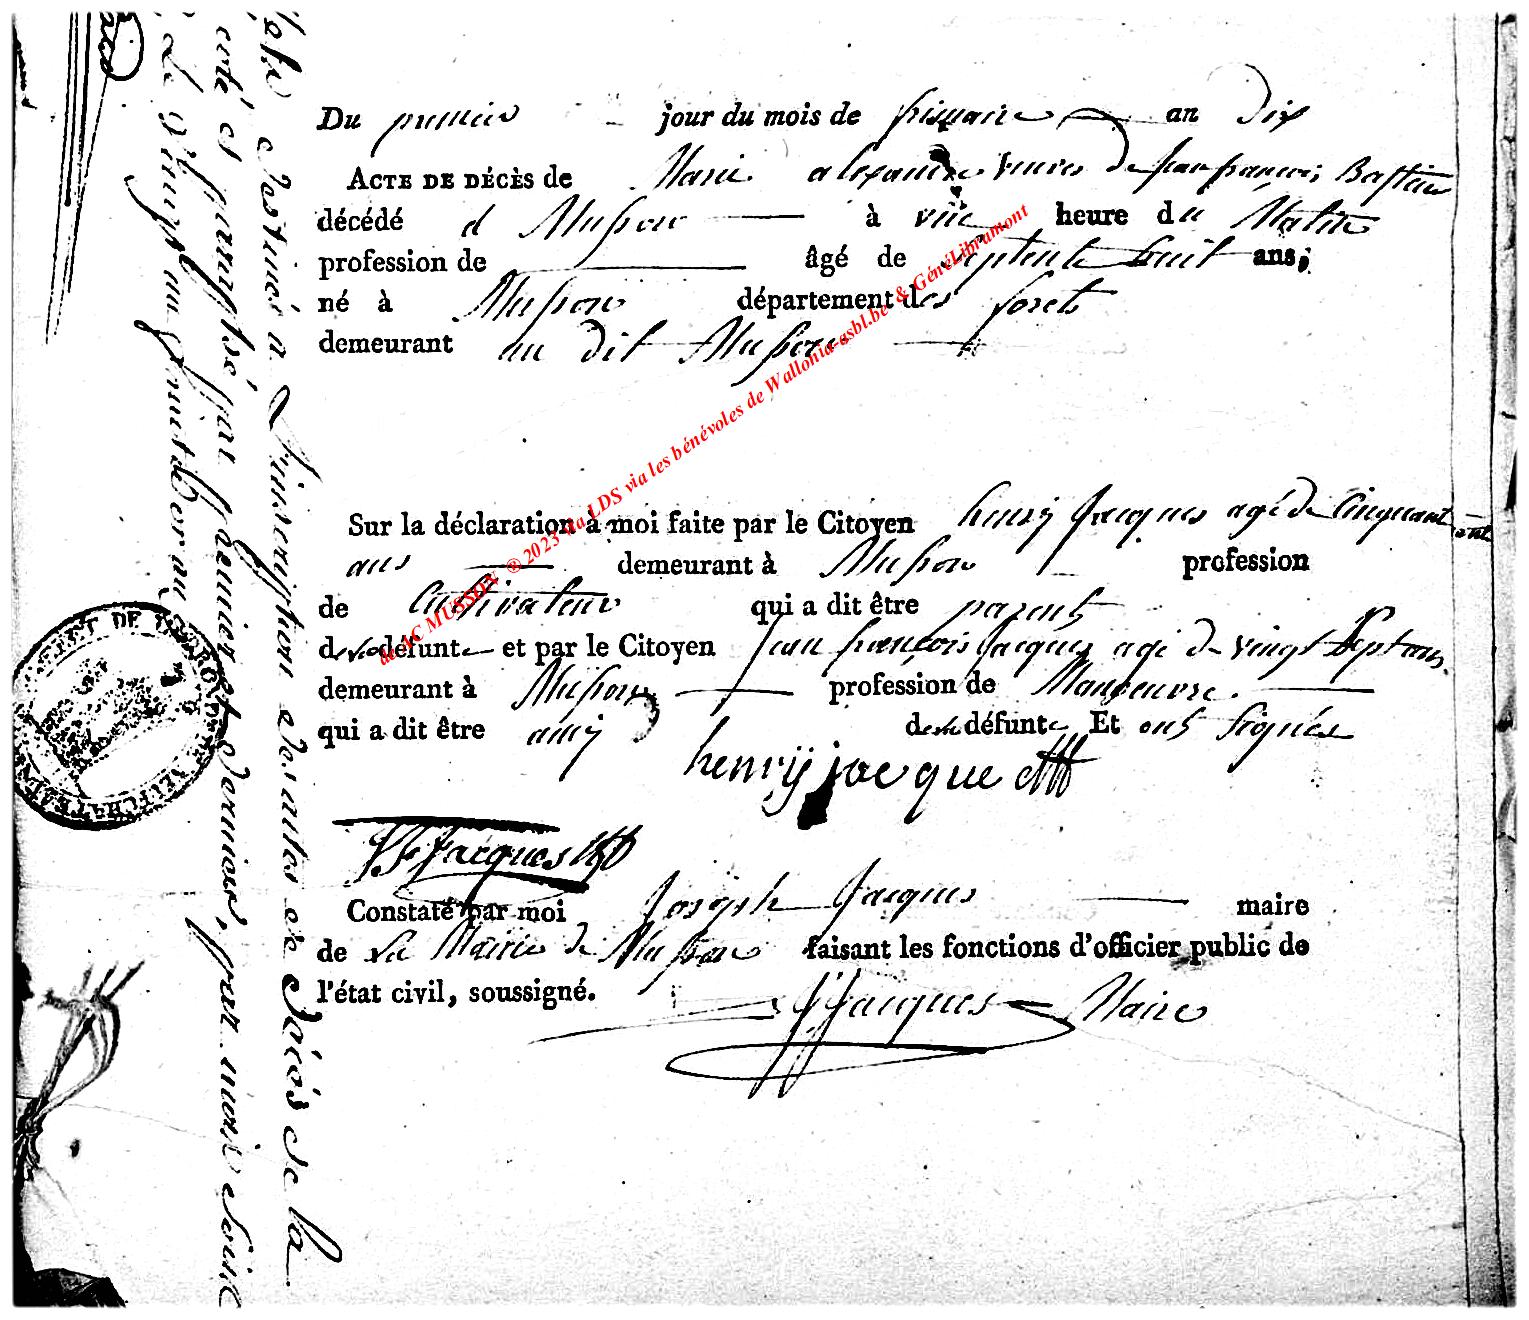 Du premier jour du mois de frimaire an dix
ACTE DE DÉCÈS de Marie alexandre veuve de jean françois Bastien
décédé à Musson à viii heure du Matin
profession de âgé de septente huit ans;
né à Musson département des forets
demeurant au dit Musson
Sur la déclaration à moi faite par le Citoyen henry Jacques agé de Cinquant
ans demeurant à Musson profession
de Cultivateur qui a dit être parent
de la défunte et par le Citoyen jean françois Jacques agé de vingt Sept ans
demeurant à Musson profession de Manoeuvre.
qui a dit être amy de la défunte Et ont Signés
henrÿ jacque
JF Jacques
Constaté par moi Joseph Jacques maire
de La Mairie de Musson faisant les fonctions d'officier public de
l'état civil, soussigné.
JJacques Maire
destinés à L'inscription des actes de Décès de la
coté et paraphé par premier et dernier, par moi
de AC MUSSON ® 2023 via LDS via les bénévoles de Wallonia-asbl.be & GénéLibramont